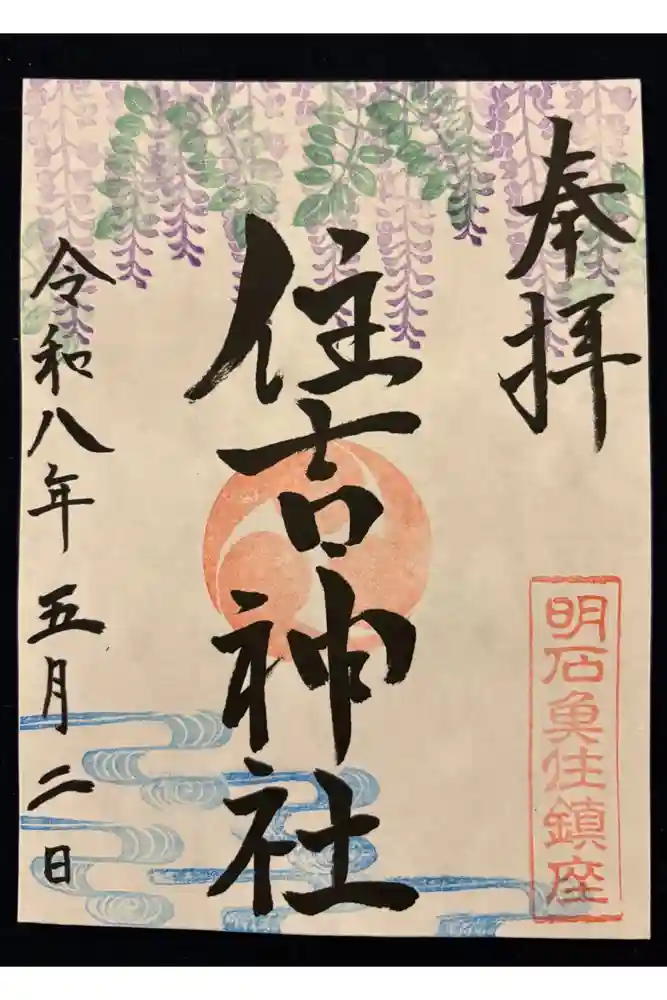 奉拝
明石魚住鎮座
住吉神社
令和八年五月二日